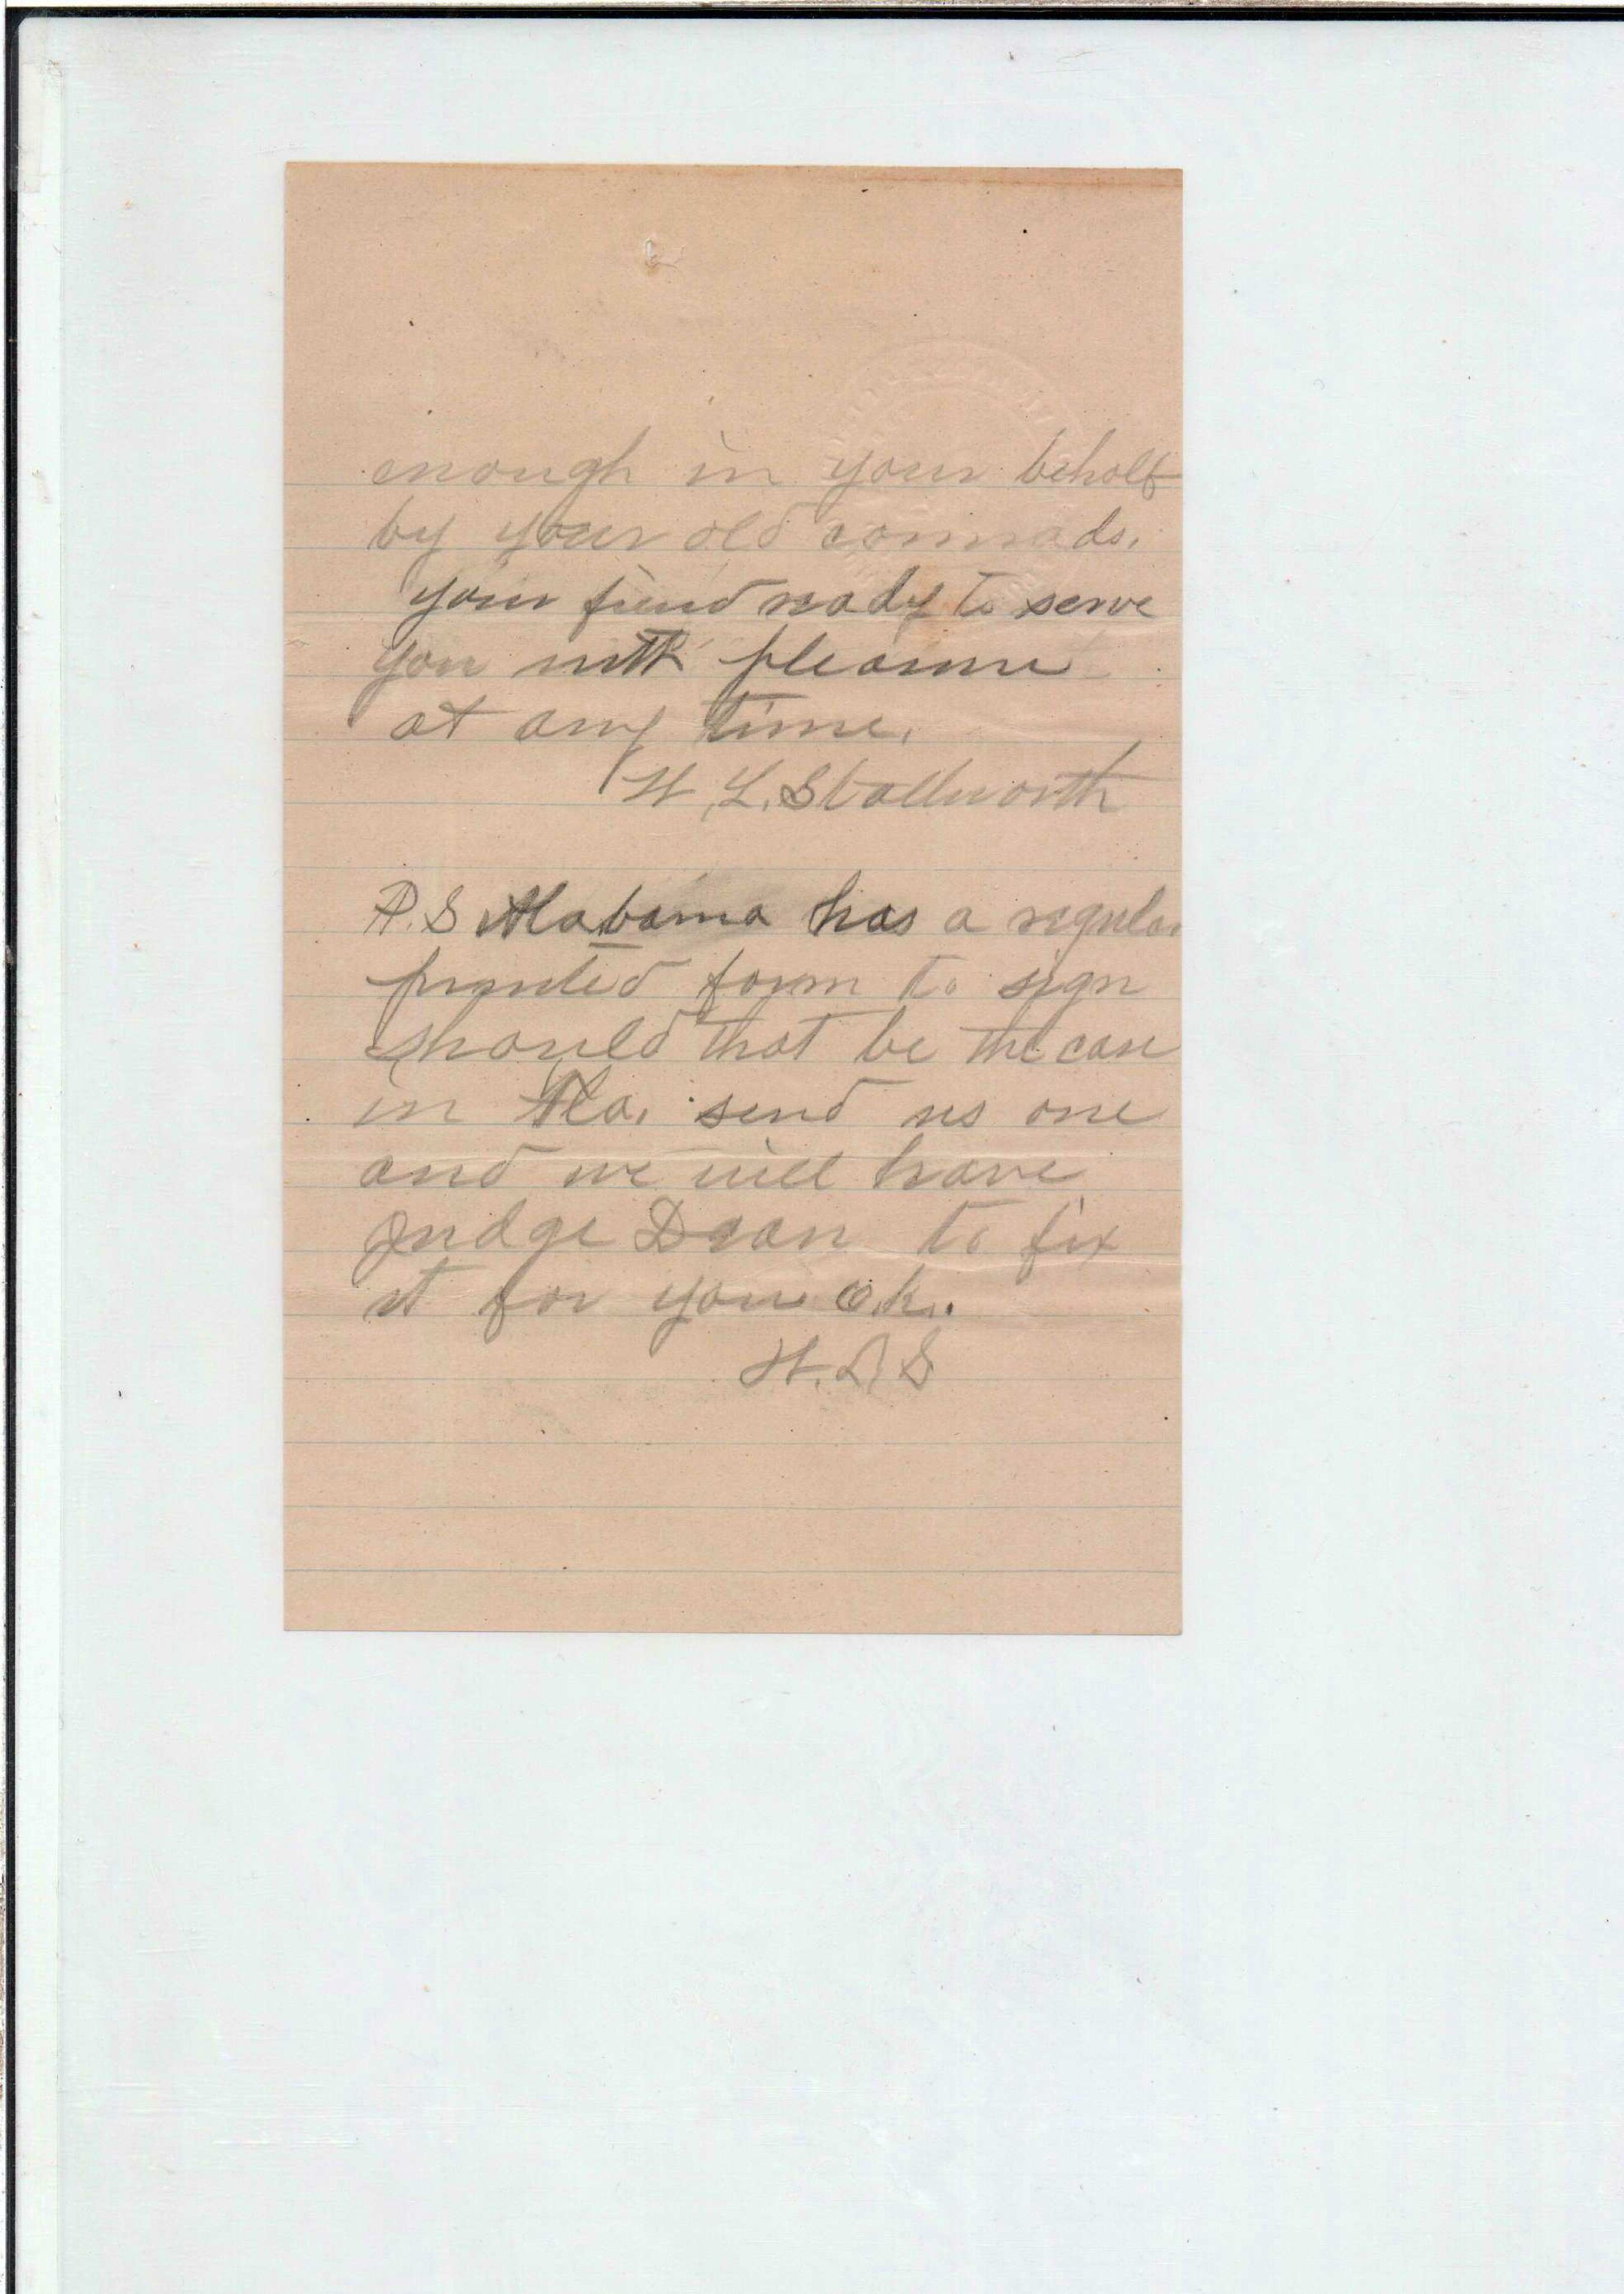 enough in your behalf
by your old comrads.
your friend ready to serve
you with pleasure
at any time.
W. L. Stallworth
P.S Alabama has a regular
printed form to sign
should that be the case
in send us one
and we will have
Judge Dean to fix
it for you O.K.
W. L S